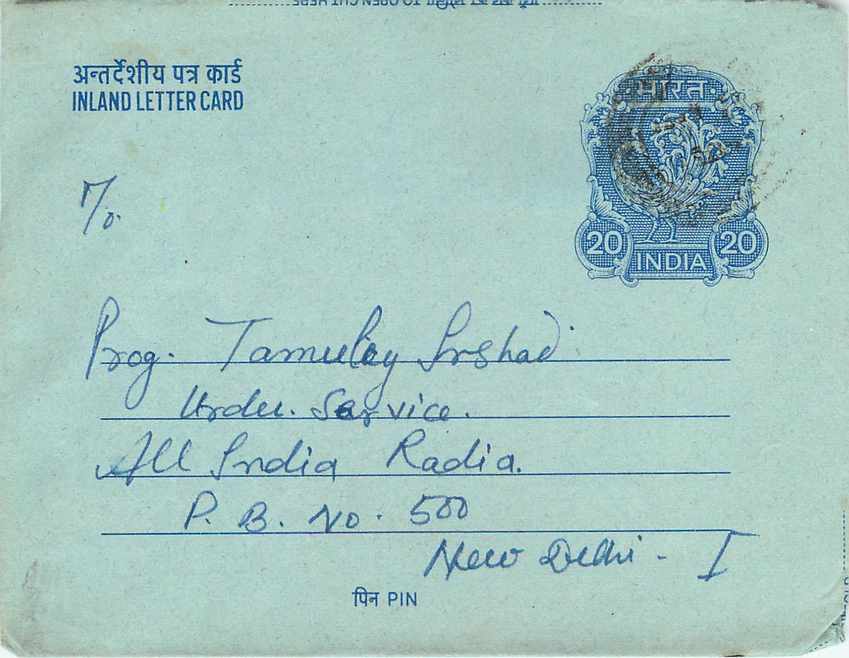 TO OPEN CUT HERE
अन्तर्देशीय पत्र कार्ड
INLAND LETTER CARD
भारत
20 20
INDIA
T/o.
Prog. Tamuley Irshad
Urdu. Service.
All India Radia.
P. B. No. 500
New Delhi - I
पिन PIN